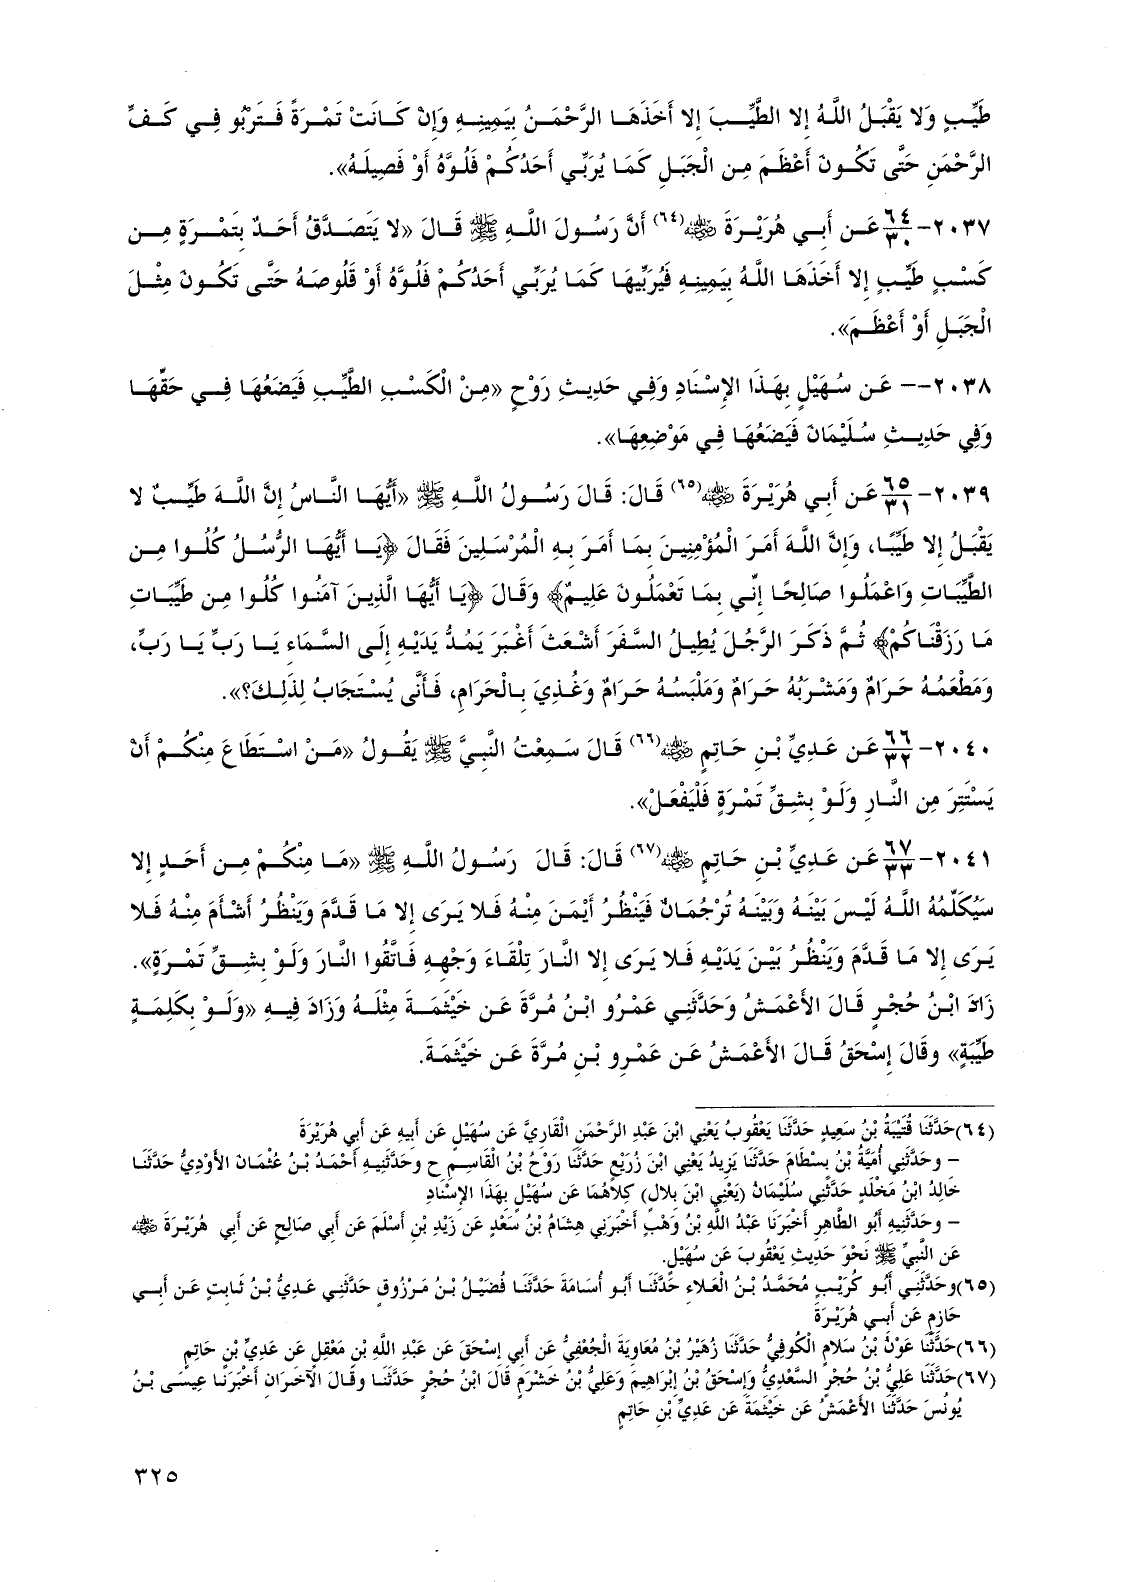 طَيِّبٍ وَلا يَقْبَلُ اللَّهُ إلا الطَّيِّبَ إلا أَخَذَهَا الرَّحْمَنُ بِيَمِينِهِ وَإِنْ كَانَتْ تَمْرَةً فَتَرْبُو فِي كَفِّ
الرَّحْمَنِ حَتَّى تَكُونَ أَعْظَمَ مِن الْجَبَلِ كَمَا يُرَبِّي أَحَدُكُمْ فَلُوَّهُ أَوْ فَصِيلَهُ».
٢٠٣٧- ٦٤/٣٠ عَن أَبِي هُرَيْرَةَ رضي الله عنه(٦٤) أَنَّ رَسُولَ اللَّهِ ﷺ قَالَ «لا يَتَصَدَّقُ أَحَدٌ بِتَمْرَةٍ مِن
كَسْبٍ طَيِّبٍ إلا أَخَذَهَا اللَّهُ بِيَمِينِهِ فَيُرَبِّيهَا كَمَا يُرَبِّي أَحَدُكُمْ فَلُوَّهُ أَوْ قَلُوصَهُ حَتَّى تَكُونَ مِثْلَ
الْجَبَلِ أَوْ أَعْظَمَ».
٢٠٣٨-- عَن سُهَيْلٍ بِهَذَا الإِسْنَادِ وَفِي حَدِيثِ رَوْحٍ «مِنْ الْكَسْبِ الطَّيِّبِ فَيَضَعُهَا فِي حَقِّهَا
وَفِي حَدِيثِ سُلَيْمَانَ فَيَضَعُهَا فِي مَوْضِعِهَا».
٢٠٣٩- ٦٥/٣١ عَن أَبِي هُرَيْرَةَ رضي الله عنه(٦٥) قَالَ: قَالَ رَسُولُ اللَّهِ ﷺ «أَيُّهَا النَّاسُ إِنَّ اللَّهَ طَيِّبٌ لا
يَقْبَلُ إلا طَيِّبًا، وَإِنَّ اللَّهَ أَمَرَ الْمُؤْمِنِينَ بِمَا أَمَرَ بِهِ الْمُرْسَلِينَ فَقَالَ ﴿يَا أَيُّهَا الرُّسُلُ كُلُوا مِن
الطَّيِّبَاتِ وَاعْمَلُوا صَالِحًا إِنِّي بِمَا تَعْمَلُونَ عَلِيمٌ﴾ وَقَالَ ﴿يَا أَيُّهَا الَّذِينَ آمَنُوا كُلُوا مِن طَيِّبَاتِ
مَا رَزَقْنَاكُمْ﴾ ثُمَّ ذَكَرَ الرَّجُلَ يُطِيلُ السَّفَرَ أَشْعَثَ أَغْبَرَ يَمُدُّ يَدَيْهِ إِلَى السَّمَاءِ يَا رَبِّ يَا رَبِّ،
وَمَطْعَمُهُ حَرَامٌ وَمَشْرَبُهُ حَرَامٌ وَمَلْبَسُهُ حَرَامٌ وَغُذِيَ بِالْحَرَامِ، فَأَنَّى يُسْتَجَابُ لِذَلِكَ؟».
٢٠٤٠- ٦٦/٣٢ عَن عَدِيِّ بْنِ حَاتِمٍ رضي الله عنه(٦٦) قَالَ سَمِعْتُ النَّبِيَّ ﷺ يَقُولُ «مَنْ اسْتَطَاعَ مِنْكُمْ أَنْ
يَسْتَتِرَ مِن النَّارِ وَلَوْ بِشِقِّ تَمْرَةٍ فَلْيَفْعَلْ».
٢٠٤١- ٦٧/٣٣ عَن عَدِيِّ بْنِ حَاتِمٍ رضي الله عنه(٦٧) قَالَ: قَالَ رَسُولُ اللَّهِ ﷺ «مَا مِنْكُمْ مِن أَحَدٍ إلا
سَيُكَلِّمُهُ اللَّهُ لَيْسَ بَيْنَهُ وَبَيْنَهُ تُرْجُمَانٌ فَيَنْظُرُ أَيْمَنَ مِنْهُ فَلا يَرَى إلا مَا قَدَّمَ وَيَنْظُرُ أَشْأَمَ مِنْهُ فَلا
يَرَى إلا مَا قَدَّمَ وَيَنْظُرُ بَيْنَ يَدَيْهِ فَلا يَرَى إلا النَّارَ تِلْقَاءَ وَجْهِهِ فَاتَّقُوا النَّارَ وَلَوْ بِشِقِّ تَمْرَةٍ».
زَادَ ابْنُ حُجْرٍ قَالَ الأَعْمَشُ وَحَدَّثَنِي عَمْرُو ابْنُ مُرَّةَ عَن خَيْثَمَةَ مِثْلَهُ وَزَادَ فِيهِ «وَلَوْ بِكَلِمَةٍ
طَيِّبَةٍ» وقَالَ إِسْحَقُ قَالَ الأَعْمَشُ عَن عَمْرِو بْنِ مُرَّةَ عَن خَيْثَمَةَ.
(٦٤)حَدَّثَنَا قُتَيْبَةُ بْنُ سَعِيدٍ حَدَّثَنَا يَعْقُوبُ يَعْنِي ابْنَ عَبْدِ الرَّحْمَنِ الْقَارِيَّ عَن سُهَيْلٍ عَن أَبِيهِ عَن أَبِي هُرَيْرَةَ
– وحَدَّثَنِي أُمَيَّةُ بْنُ بِسْطَامَ حَدَّثَنَا يَزِيدُ يَعْنِي ابْنَ زُرَيْعٍ حَدَّثَنَا رَوْحُ بْنُ الْقَاسِمِ ح وحَدَّثَنِيهِ أَحْمَدُ بْنُ عُثْمَانَ الأَوْدِيُّ حَدَّثَنَا
خَالِدُ ابْنُ مَخْلَدٍ حَدَّثَنِي سُلَيْمَانُ (يَعْنِي ابْنَ بِلالٍ) كِلاَهُمَا عَن سُهَيْلٍ بِهَذَا الإِسْنَادِ
– وحَدَّثَنِيهِ أَبُو الطَّاهِرِ أَخْبَرَنَا عَبْدُ اللَّهِ بْنُ وَهْبٍ أَخْبَرَنِي هِشَامُ بْنُ سَعْدٍ عَن زَيْدِ بْنِ أَسْلَمَ عَن أَبِي صَالِحٍ عَن أَبِي هُرَيْرَةَ رضي الله عنه
عَن النَّبِيِّ ﷺ نَحْوَ حَدِيثِ يَعْقُوبَ عَن سُهَيْلٍ.
(٦٥)وحَدَّثَنِي أَبُو كُرَيْبٍ مُحَمَّدُ بْنُ الْعَلاءِ حَدَّثَنَا أَبُو أُسَامَةَ حَدَّثَنَا فُضَيْلُ بْنُ مَرْزُوقٍ حَدَّثَنِي عَدِيُّ بْنُ ثَابِتٍ عَن أَبِي
حَازِمٍ عَن أَبِي هُرَيْرَةَ
(٦٦)حَدَّثَنَا عَوْنُ بْنُ سَلامٍ الْكُوفِيُّ حَدَّثَنَا زُهَيْرُ بْنُ مُعَاوِيَةَ الْجُعْفِيُّ عَن أَبِي إِسْحَقَ عَن عَبْدِ اللَّهِ بْنِ مَعْقِلٍ عَن عَدِيِّ بْنِ حَاتِمٍ
(٦٧)حَدَّثَنَا عَلِيُّ بْنُ حُجْرٍ السَّعْدِيُّ وَإِسْحَقُ بْنُ إِبْرَاهِيمَ وَعَلِيُّ بْنُ خَشْرَمٍ قَالَ ابْنُ حُجْرٍ حَدَّثَنَا وقَالَ الآخَرَانِ أَخْبَرَنَا عِيسَى بْنُ
يُونُسَ حَدَّثَنَا الأَعْمَشُ عَن خَيْثَمَةَ عَن عَدِيِّ بْنِ حَاتِمٍ
٣٢٥